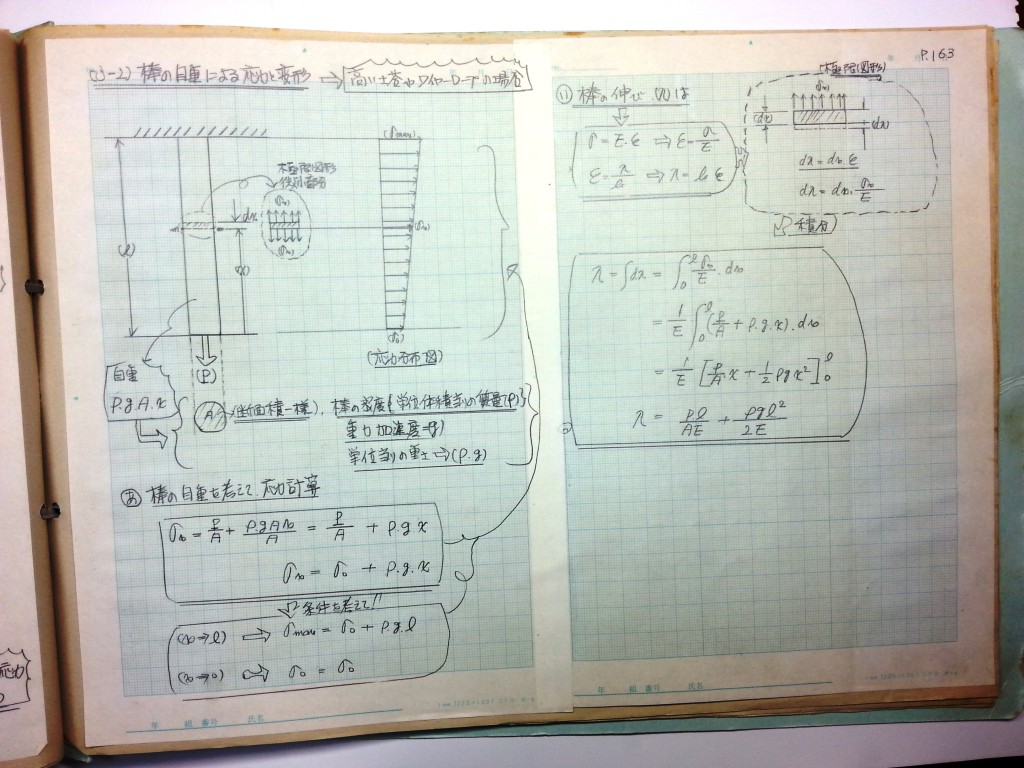 (3-2) 棒の自重による応力と変形 ⇒ 高い土塔やワイヤーロープの場合
P.163
(σmax)
極限図形
微小部分
(σx)
dx
(σx)
(σx)
(l)
(x)
(σ0)
(P)
(応力分布図)
自重
ρ.g.A.x
A (断面積一様)、棒の密度{単位体積当りの質量(ρ)}
重力加速度=g)
単位当りの重土⇒(ρ.g)
あ 棒の自重を考えて、応力計算
σx = P/A + ρ.g.A.x/A = P/A + ρ.g.x
σx = σ0 + ρ.g.x
条件を考えて!!
(x→l) ⇒ σmax = σ0 + ρ.g.l
(x→0) ⇒ σ0 = σ0
(い) 棒の伸び(λ)は
σ = E.ε ⇒ ε = σ/E
ε = λ/l ⇒ λ = l.ε
(極限図形)
(σx)
(dx)
(dλ)
dλ = dx.ε
dλ = dx.σx/E
積分
λ = ∫dλ = ∫₀ˡ σx/E .dx
= 1/E ∫₀ˡ (P/A + ρ.g.x).dx
= 1/E [P/A x + 1/2 ρgx²]₀ˡ
λ = Pl/AE + ρgl²/2E
年 組 番号 氏名
年 組 番号 氏名
応力